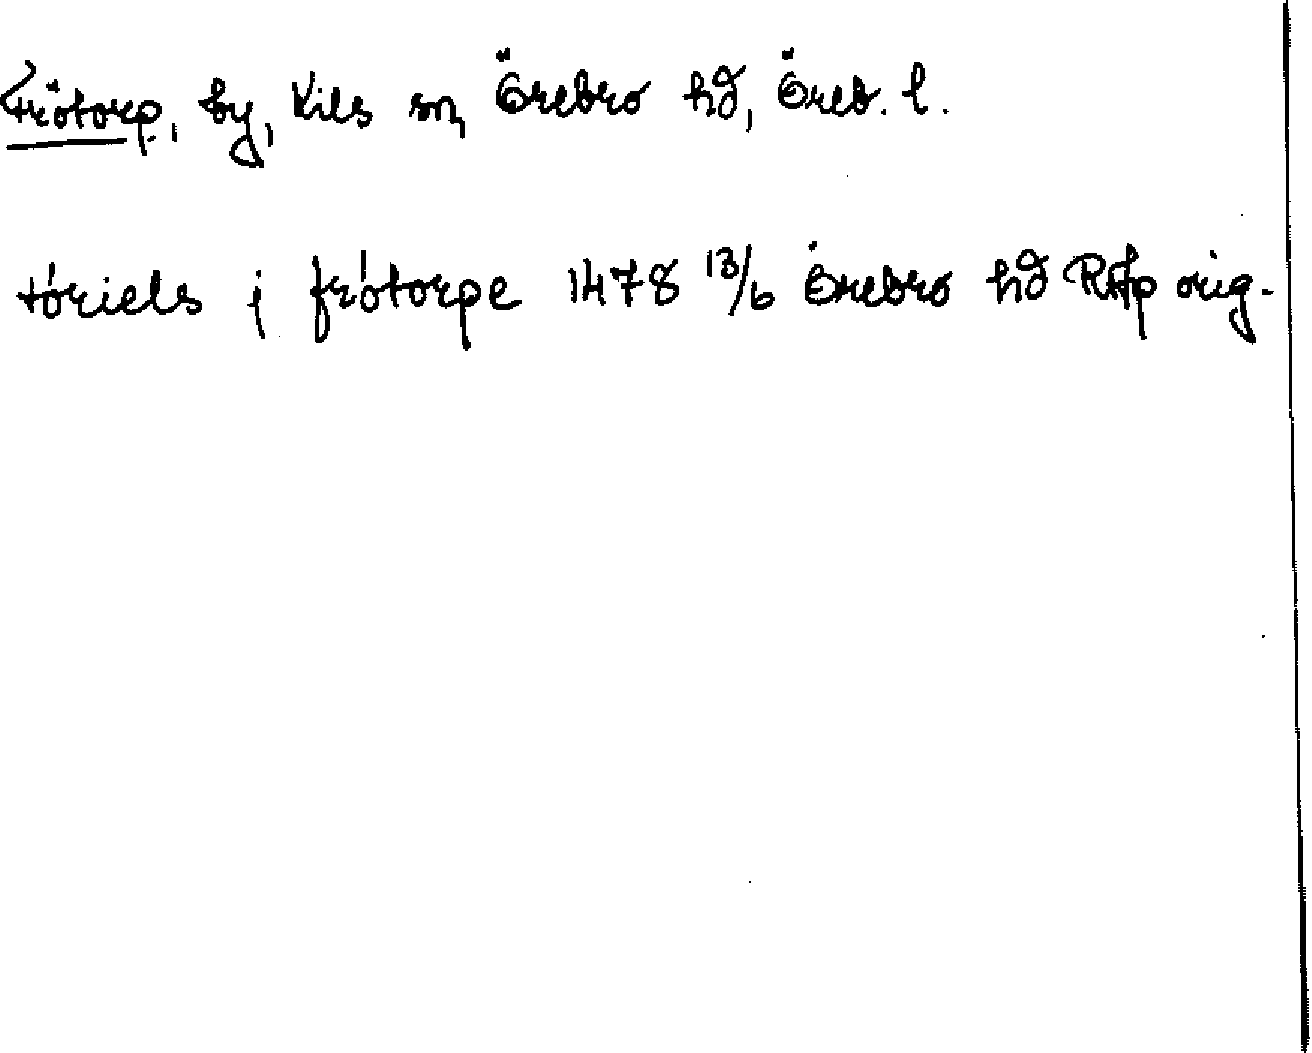 Frötorp, by, Kils sn, Örebro hd, Öreb. l.
tóriels j frótorpe 1478 13/6 Örebro hd RAp orig.